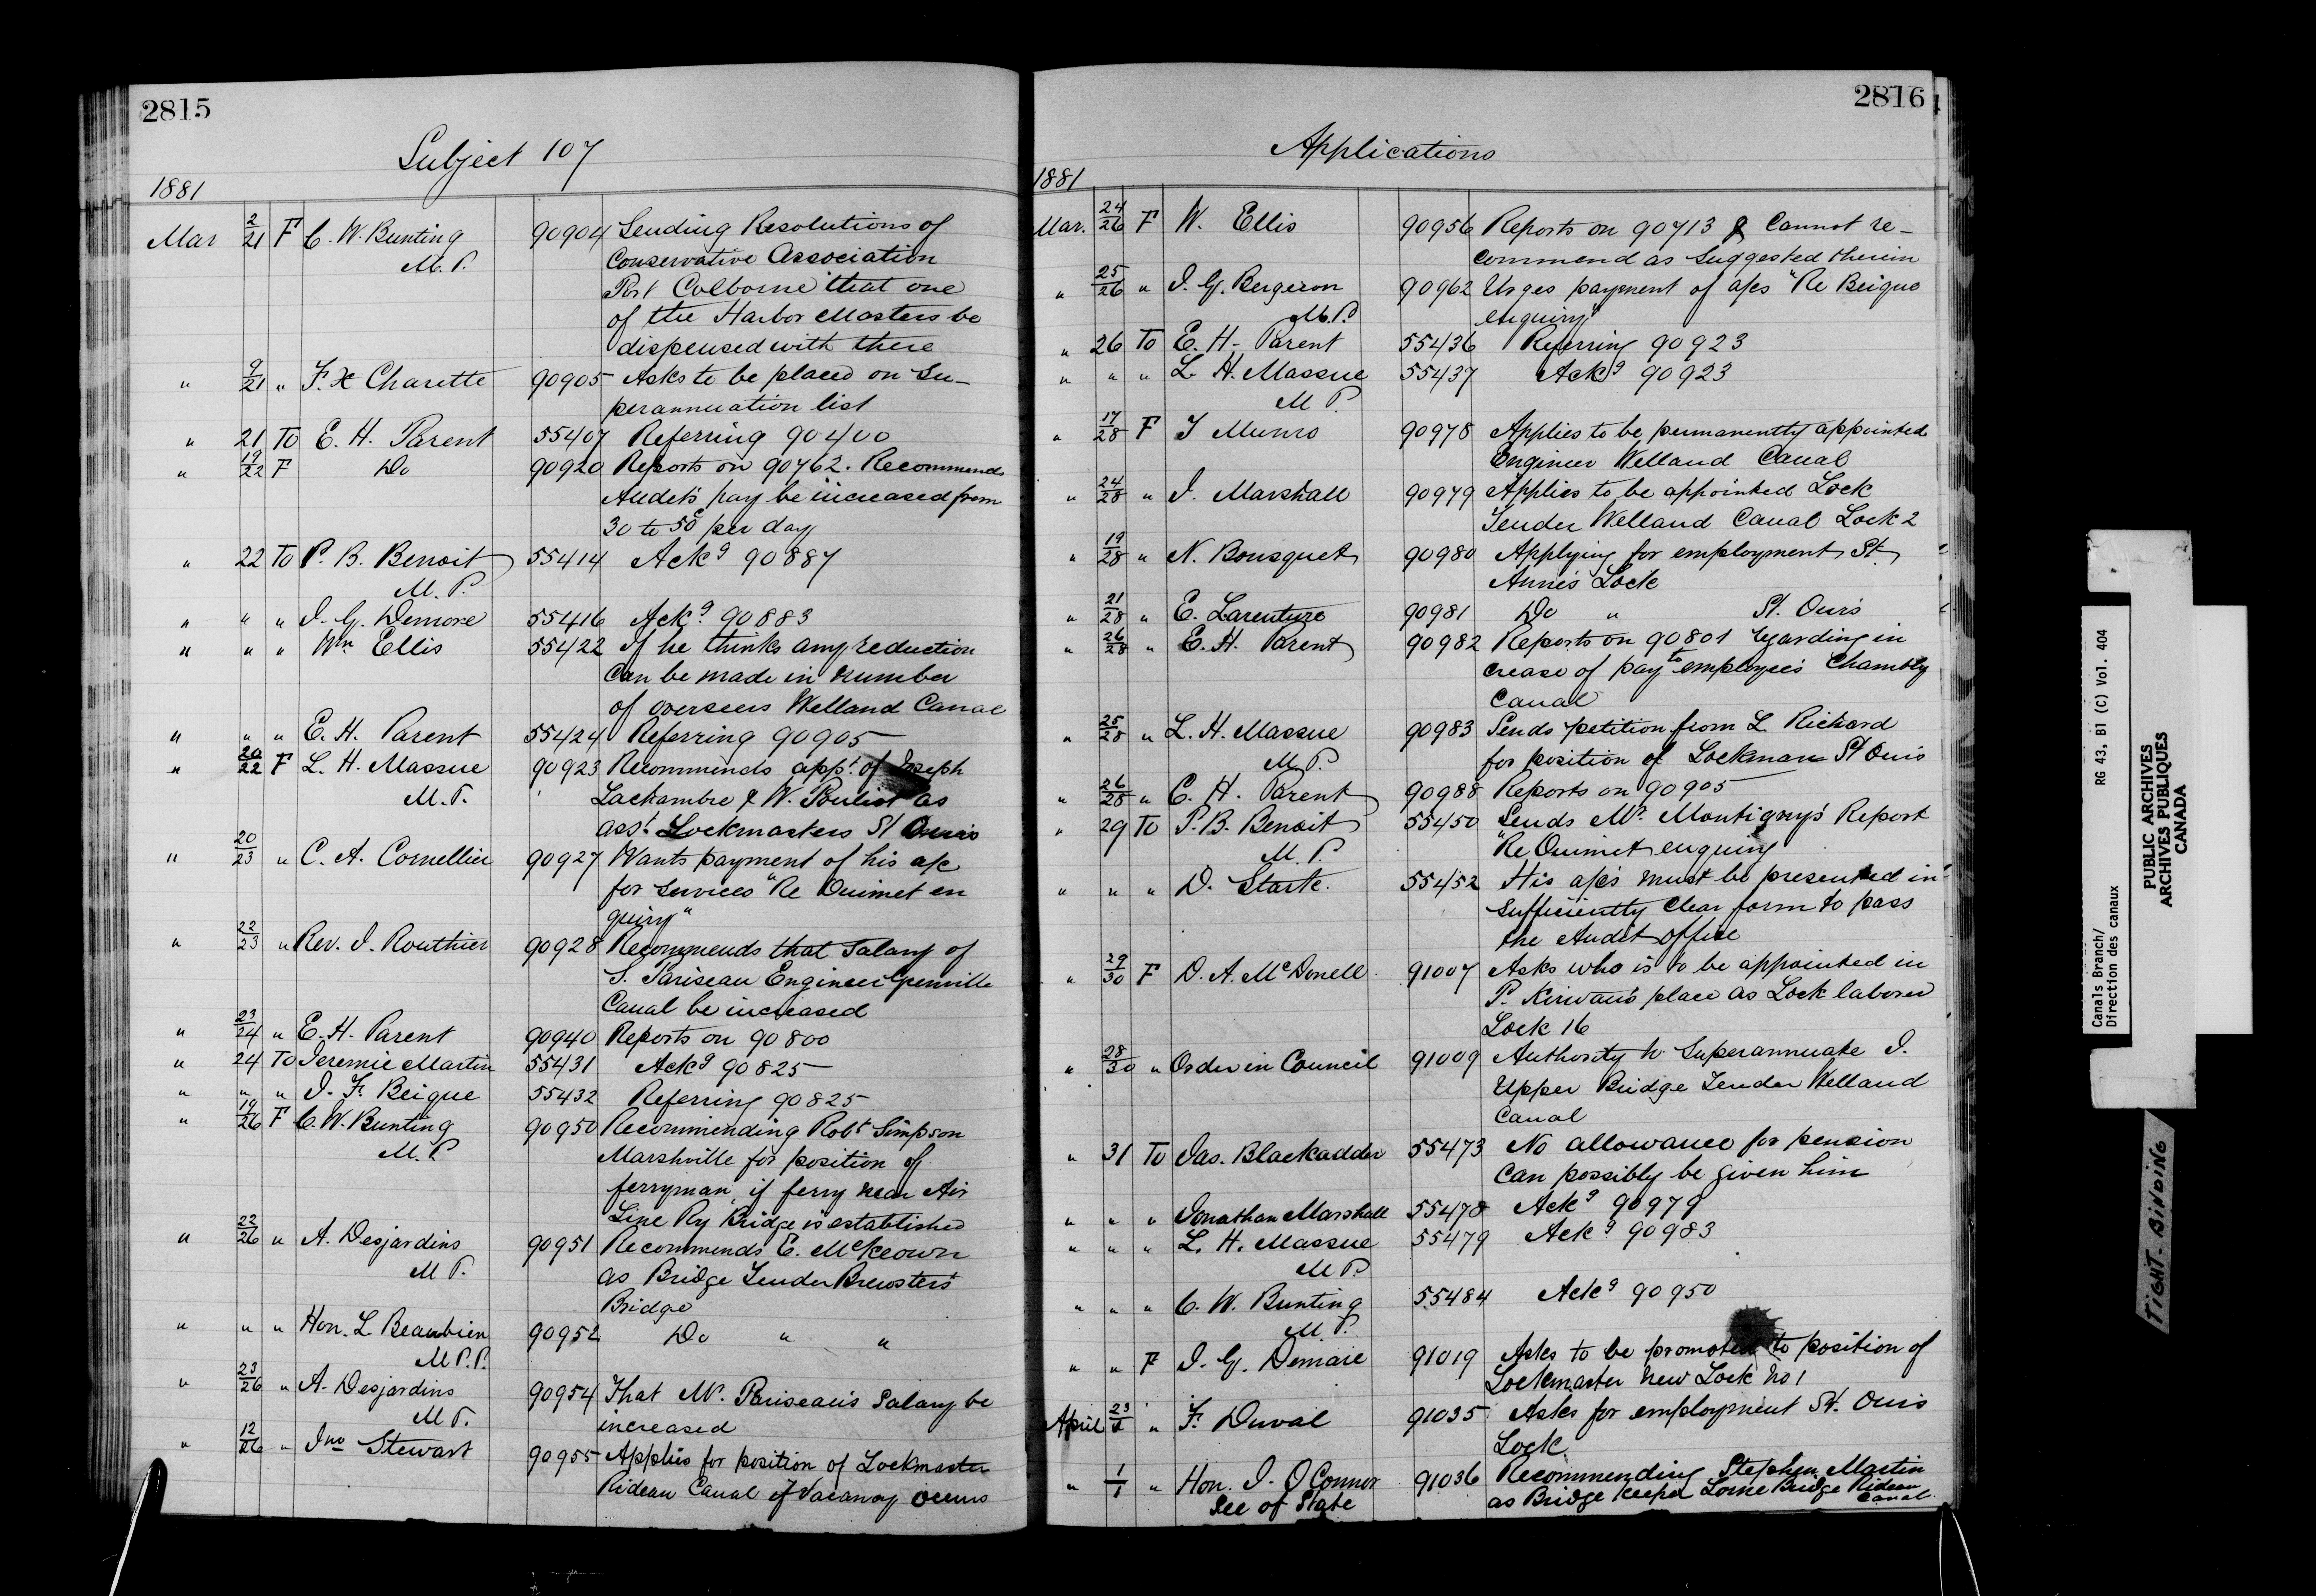 2815
Subject 107
1881
Mar 2/21 F C. W. Bunting 90904 Sending Resolutions of
M. P. Conservative Association
Port Colborne that one
of the Harbor Masters be
dispensed with there
" 9/21 " F. X Charette 90905 Asks to be placed on Su-
perannuation list
" 21 To E. H. Parent 55407 Referring 90400
" 19/22 F Do 90920 Reports on 90762. Recommends
Audet's pay be increased from
30 to 50c per day
" 22 To P. B. Benoit 55414 Ackg 90887
M. P.
" " " J. G. Demore 55416 Ackg 90883
" " " Wm Ellis 55422 If he thinks any reduction
can be made in number
of overseers Welland Canal
" " " E. H. Parent 55424 Referring 90905
" 20/22 F L. H. Massue 90923 Recommends appt. of Joseph
M. P. Lachambre & W. Pouliot as
asst. Lockmasters St Ours
" 20/23 " C. A. Cornellier 90927 Wants payment of his a/c
for services "Re Ouimet en
quiry"
" 22/23 " Rev. J. Routhier 90928 Recommends that Salary of
S. Pariseau Engineer Grenville
Canal be increased
" 23/24 " E. H. Parent 90940 Reports on 90800
" 24 To Jeremie Martin 55431 Ackg 90825
" " " J. F. Beique 55432 Referring 90825
" 19/26 F C. W. Bunting 90950 Recommending Robt Simpson
M. P. Marshville for position of
ferryman, if ferry near Air
Line Ry Bridge is established
" 22/26 " A. Desjardins 90951 Recommends E. McKeown
M P. as Bridge Tender Brewster's
Bridge
" " " Hon. L Beaubien 90952 Do " "
M P. P.
" 23/26 " A. Desjardins 90954 That Mr. Pariseau's Salary be
M P. increased
" 12/26 " Jno Stewart 90955 Applies for position of Lockmaster
Rideau Canal if vacancy occurs
2816
Applications
1881
Mar. 24/26 F W. Ellis 90956 Reports on 90713 & cannot re-
commend as suggested therein
" 25/26 " J. G. Bergeron 90962 Urges payment of a/cs "Re Beique
M. P. enquiry"
" 26 To E. H. Parent 55436 Referring 90923
" " " L. H. Massue 55437 Ackg 90923
M P.
" 17/28 F J Munro 90978 Applies to be permanently appointed
Engineer Welland Canal
" 24/28 " J. Marshall 90979 Applies to be appointed Lock
Tender Welland Canal Lock 2
" 19/28 " N. Bousquet 90980 Applying for employment St.
Anne's Lock
" 21/28 " E. Larenture 90981 Do " St. Ours
" 26/28 " E. H. Parent 90982 Reports on 90801 regarding in
crease of pay to employees Chambly
Canal
" 25/28 " L. H. Massue 90983 Sends petition from L. Richard
M. P. for position of Lockman St Ours
" 26/28 " E. H. Parent 90988 Reports on 90905
" 29 To P. B. Benoit 55450 Sends Mr. Montigny's Report
M. P. "Re Ouimet enquiry
" " " D. Stark. 55452 His a/cs must be presented in
sufficiently clear form to pass
the Audit office
" 29/30 F D. A. McDonell 91007 Asks who is to be appointed in
P. Kirwan's place as Lock laborer
Lock 16
" 28/30 " Order in Council 91009 Authority to Superannuate J.
Upper Bridge Tender Welland
Canal
" 31 To Jas. Blackadder 55473 No allowance for pension
can possibly be given him
" " " Jonathan Marshall 55478 Ackg 90979
" " " L. H. Massue 55479 Ackg 90983
M P.
" " " C. W. Bunting 55484 Ackg 90950
M. P.
" " F J. G. Demare 91019 Asks to be promoted to position of
Lockmaster new Lock No 1
April 23/1 " F. Duval 91035 Asks for employment St. Ours
Lock.
" 1/1 " Hon. J. O'Connor 91036 Recommending Stephen Martin
Sec of State as Bridge keeper Lorne Bridge Rideau
Canal.
Canals Branch/ RG 43, B1 (C) Vol. 404
Direction des canaux
PUBLIC ARCHIVES
ARCHIVES PUBLIQUES
CANADA
TIGHT BINDING